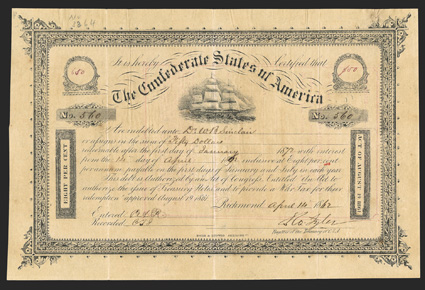 It is hereby Certified that
The Confederate States of America
No. 560
No. 560
Dr W R Sinclair
or assigns in the sum of Fifty Dollars
redeemable after the first day of January 1877 with interest
from the 14 day of April
per annum payable on the first days of January and July in each year
This debt is authorized by an Act of Congress Entitled "An Act to
authorize the issue of Treasury Notes and to provide a War Tax for their
redemption" approved August 19 1861
Richmond April 14 1862
Entered
Recorded
EIGHT PER CENT
ACT OF AUGUST 19 1861